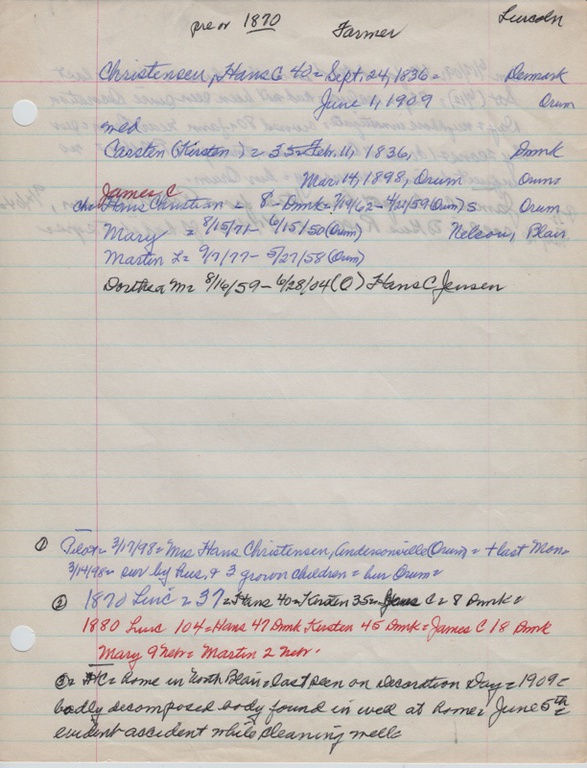 pre or 1870
Farmer
Lincoln
Christensen, Hans C 40 = Sept. 24, 1836 = Denmark
June 1, 1909 Orum
med
Carsten (Kersten) = 35 = Feb. 11, 1836, Dnmk
Mar. 14, 1898, Orum Orum
James C
ch = Hans Christian = 8 - Dnmk = 7/9/62 - 4/21/59 (Orum) S Orum
Mary = 8/15/71 - 6/15/50 (Orum) Nelson, Blair
Martin L = 9/7/77 - 5/27/58 (Orum)
Dorthea M = 8/16/59 - 6/28/04 (O) Hans C Jensen
① Pilot = 3/17/98 = Mrs Hans Christensen, Andersonville (Orum) = + last Mon =
3/14/98 = sur by hus. & 3 grown children = bur Orum =
② 1870 Linc = 37 = Hans 40 = Kersten 35 = James C = 8 Dnmk =
1880 Linc 104 = Hans 47 Dnmk Kersten 45 Dnmk = James C 18 Dnmk
Mary 9 Nebr = Martin 2 Nebr.
③ = HC = home in North Blair = last seen on Decoration Day = 1909 =
badly decomposed body found in well at home = June 5th =
evident accident while cleaning well =